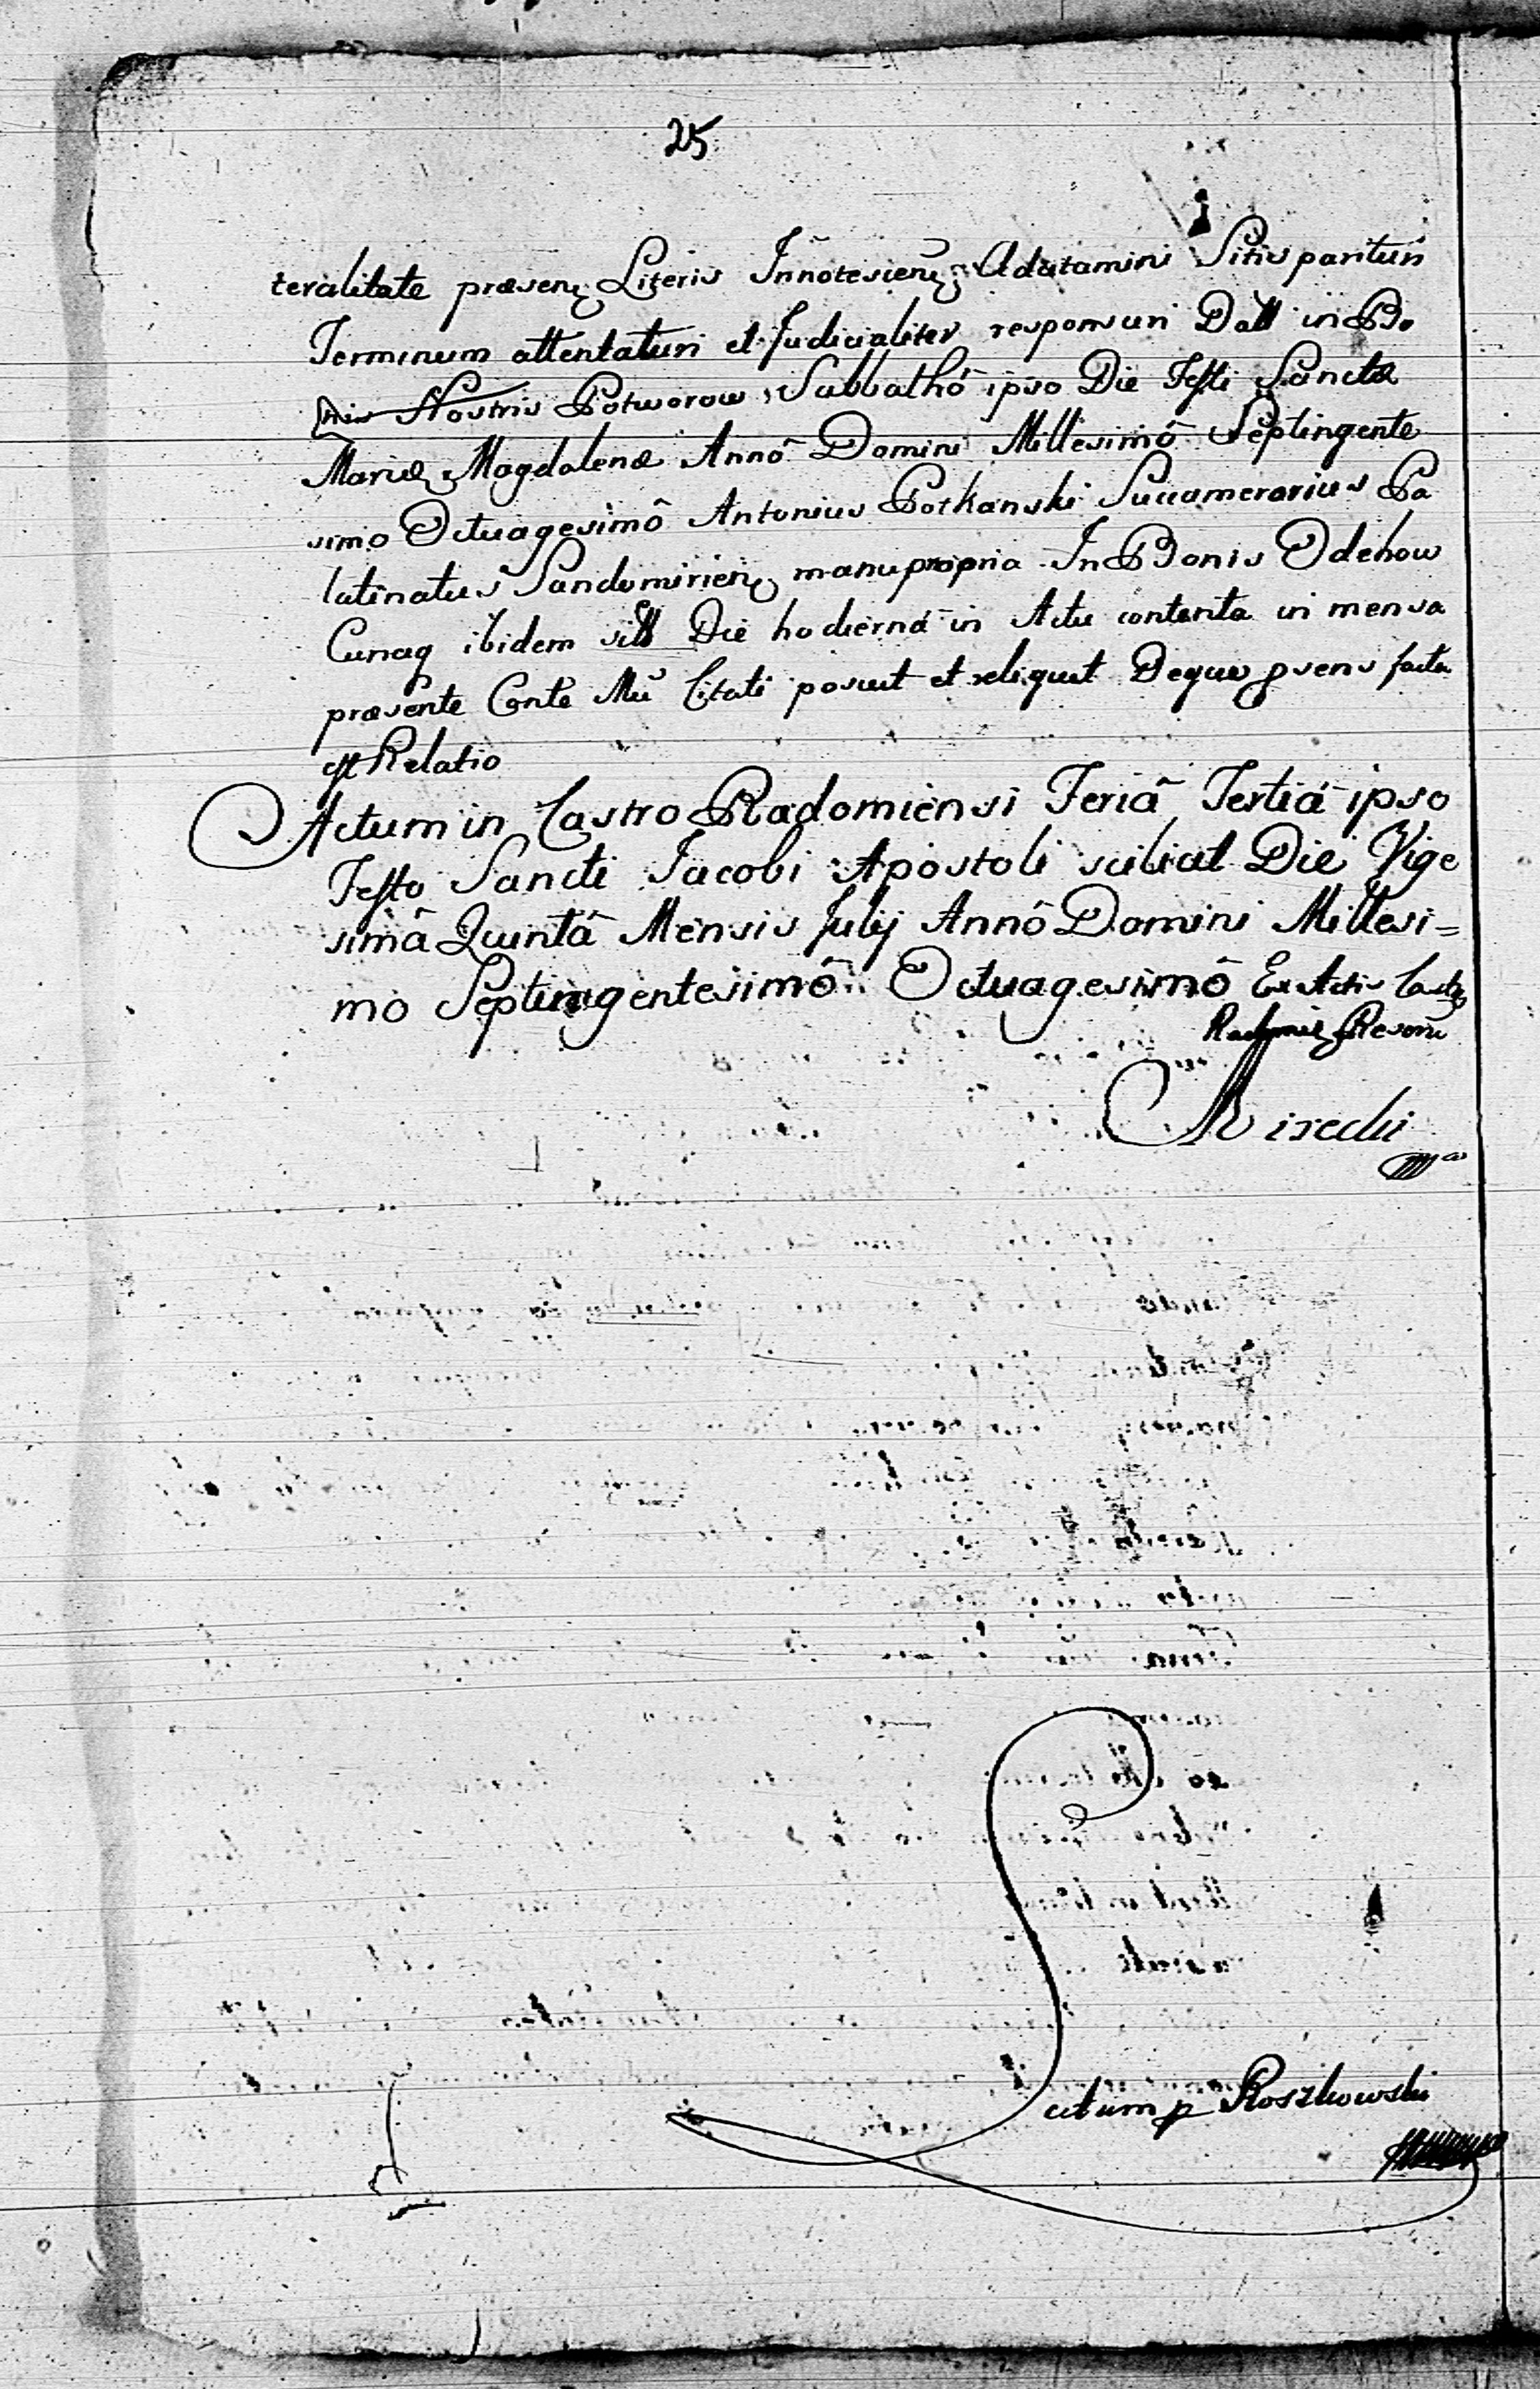 25
teralitate præsen Literis Innotescen Adcitamini Sitis parituri
Terminum attentaturi et Judicialiter responsuri Datt in Bo
nis Nostris Potworow Sabbathô ipso Die Festi Sanctæ
Mariæ Magdalenæ Annô Domini Millesimô Septingente
simo Octuagesimô Antonius Potkanski Succamerarius Pa
latinatus Sandomirien manu propria In Bonis Odehow
Curiaq ibidem Die hodierná in Actu contenta in mensa
præsente Citati posuit et reliquit Deque psens facta
est Relatio
Actum in Castro Radomiensi Feriâ Tertiâ ipso
Festo Sancti Jacobi Apostoli scilicet Die Vige
simâ Quintâ Mensis Julij Annô Domini Millesi=
mo Septingentesimô Octuagesimô Ex Actis Cast
Radomien
ctum p Roszkowski